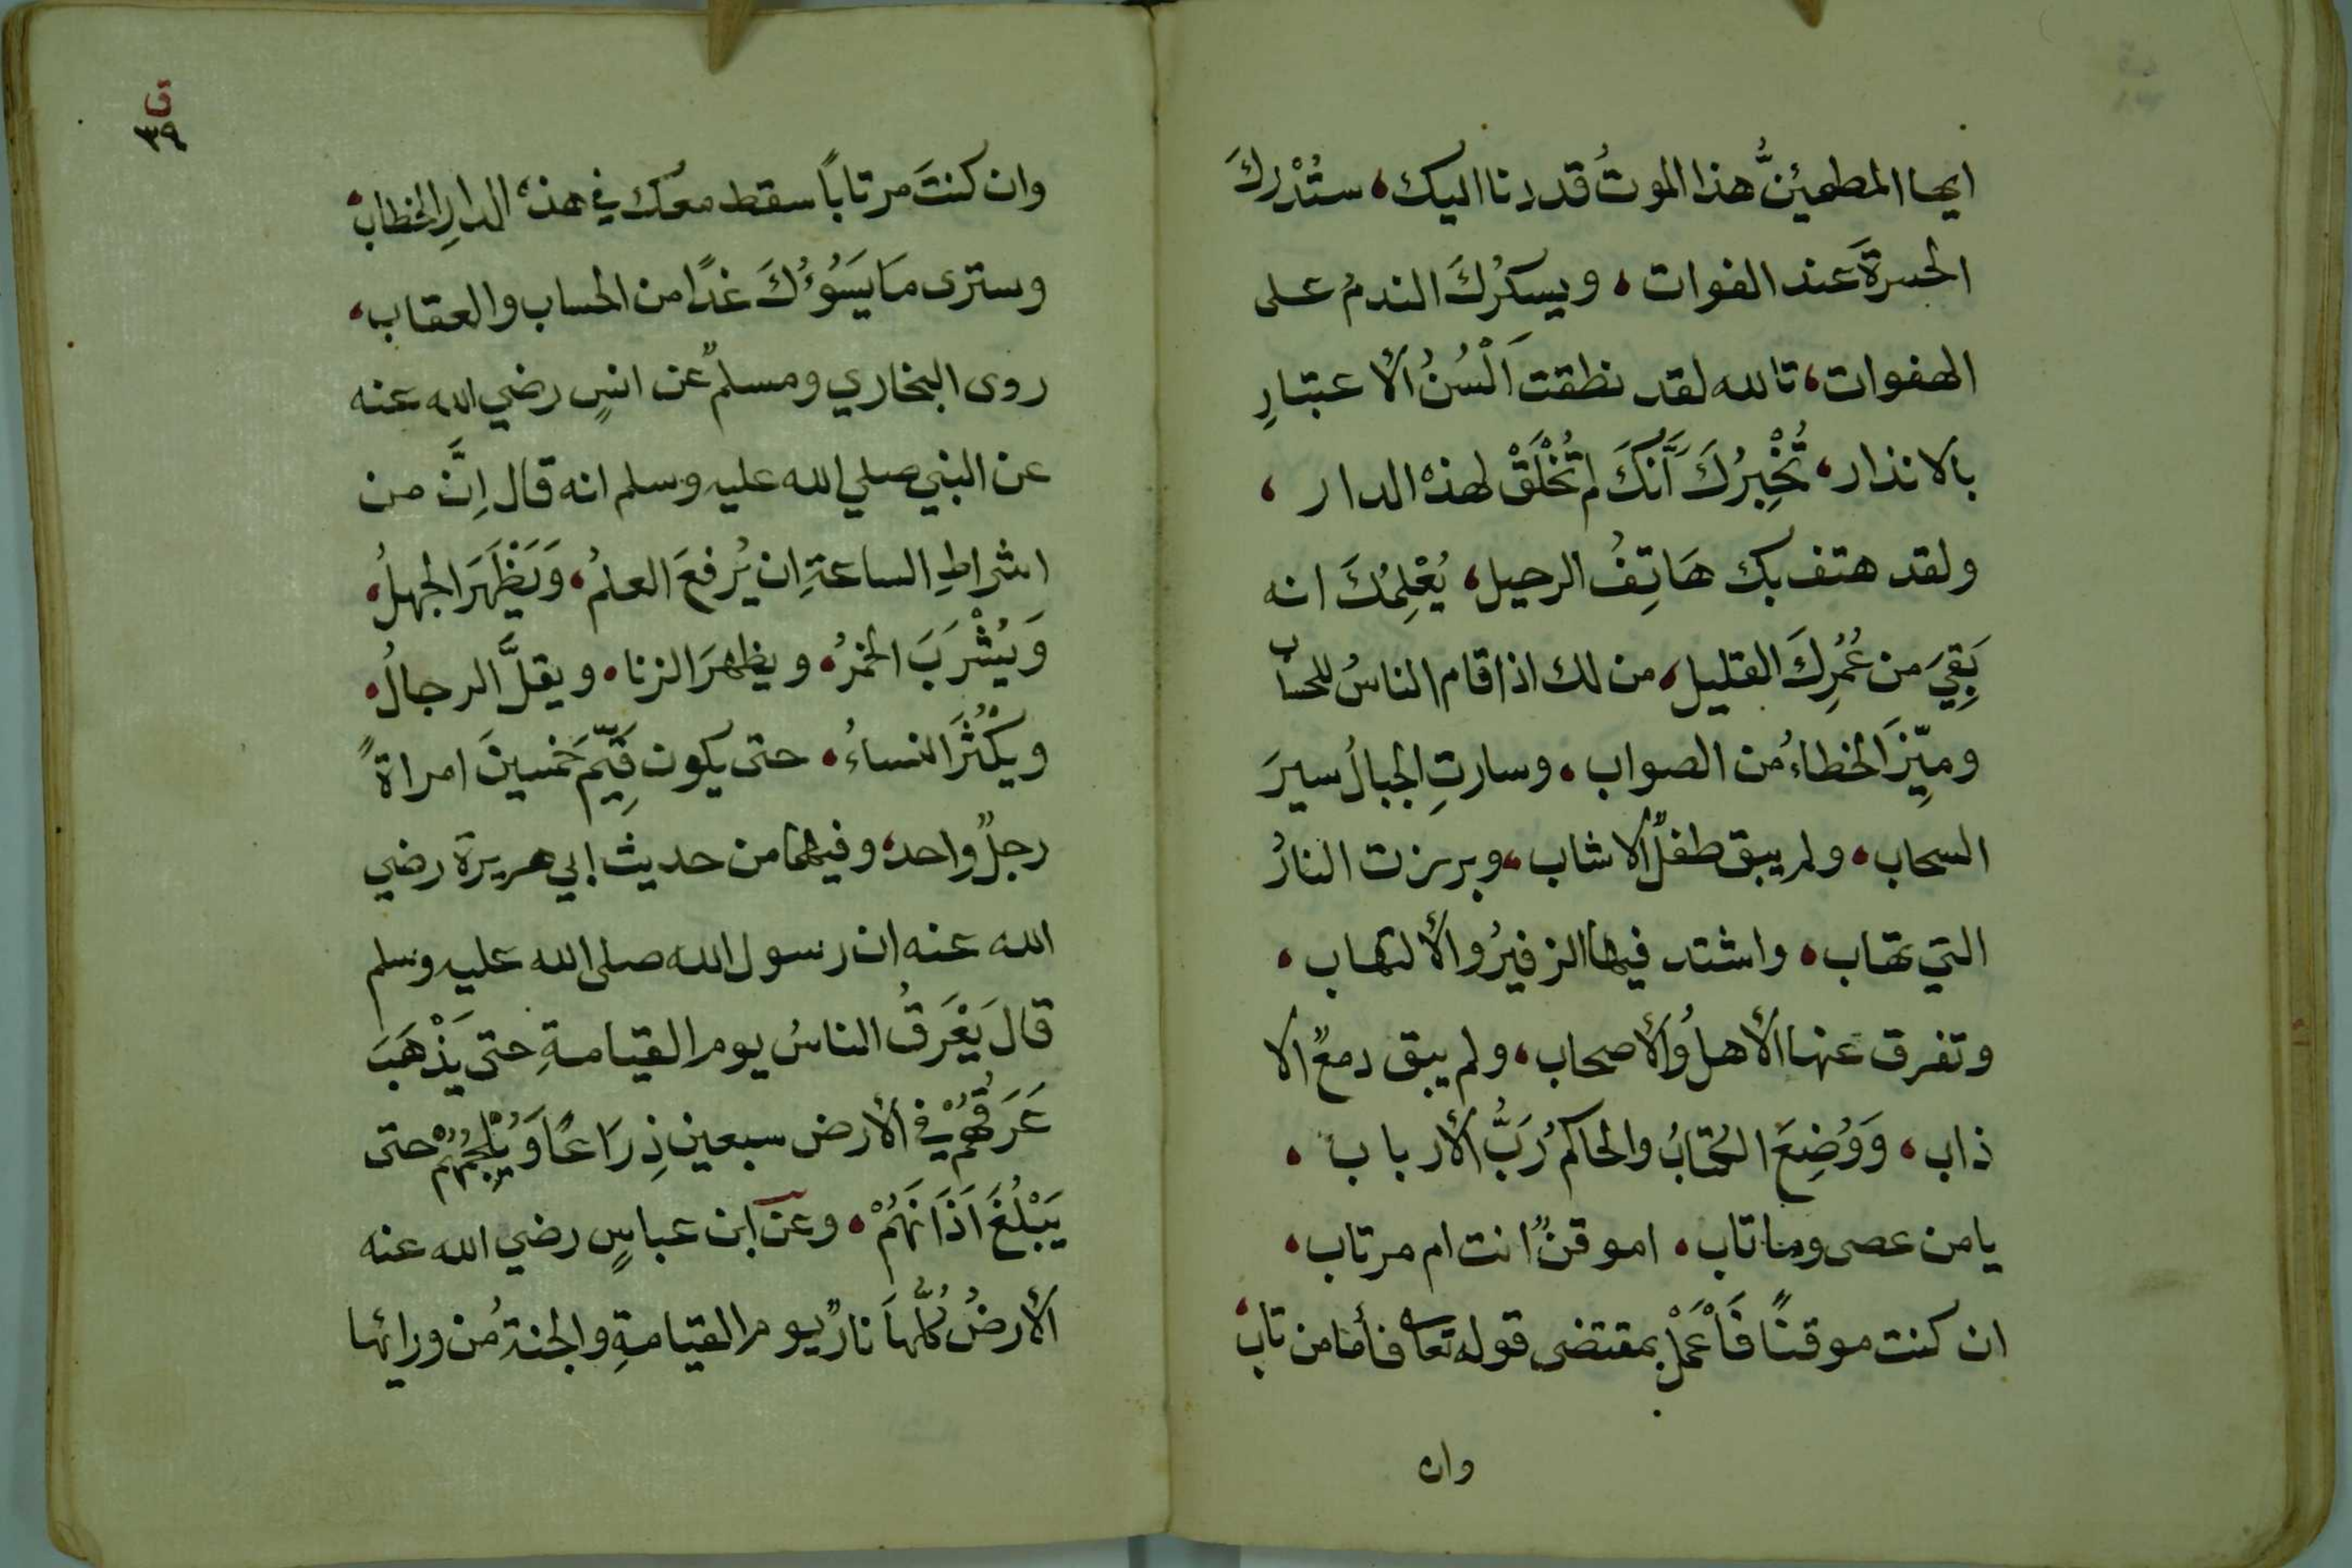 ايها المطمئنُّ هذا الموتُ قد دنا اليك، ستُدْركَ
الحسرةَ عند الفوات، ويسكرُكَ الندمُ على
الهفوات، تالله لقد نطقت اَلْسُنُ الأعتبارِ
بالانذار، تُخْبِرُكَ اَنَّكَ لم تُخْلَقْ لهذه الدار،
ولقد هتف بك هَاتِفُ الرحيل، يُعْلِمُكَ انه
بَقِيَ من عُمُرِكَ القليل، من لك اذا قام الناسُ للحساب
وميِّزَ الخطاءُ من الصواب، وسارتِ الجبالُ سيرَ
السحاب، ولم يبق طفلٌ الا شاب، وبرزت النارُ
التي تهاب، واشتد فيها الزفيرُ والألتهاب،
وتفرق عنها الأهلُ والأصحاب، ولم يبق دمعٌ الا
ذاب، وَوُضِعَ الكتابُ والحاكمُ رَبُّ الأرباب،
يا من عصى وما تاب، اموقنٌ انت ام مرتاب،
ان كنت موقنًا فَاْعْمَلْ بمقتضى قوله تعا فأما من تاب،
وان
ق
٣٩
وان كنتَ مرتاباً سقط معك في هذه الدارِ الخطاب،
وسترى مَا يَسَوُءُكَ غدًا من الحساب والعقاب،
روى البخاري ومسلمٌ عن انسٍ رضي الله عنه
عن النبي صلي الله عليه وسلم انه قال اِنَّ من
اشراطِ الساعةِ ان يُرفعَ العلمُ، وَيَظْهَرَ الجهلُ،
وَيُشْرَبَ الخمرُ، ويظهرَ الزنا، ويقلَّ الرجالُ،
ويَكْثُرَ النساءُ، حتى يكون قَيِّمَ خمسينَ امراةً
رجلٌ واحد، وفيهما من حديث ابي هريرة رضي
الله عنه ان رسول الله صلى الله عليه وسلم
قال يَعْرَقُ الناسُ يوم القيامةِ حتى يَذْهَبَ
عَرَقُهُمْ في الأرض سبعين ذِرَاعًا وَيُلْجِمُهُمْ حتى
يَبْلُغَ اَذَانَهُمْ، وعن ابن عباسٍ رضي الله عنه
الأرضُ كُلُّهَا نارٌ يوم القيامةِ والجنةُ من ورائها